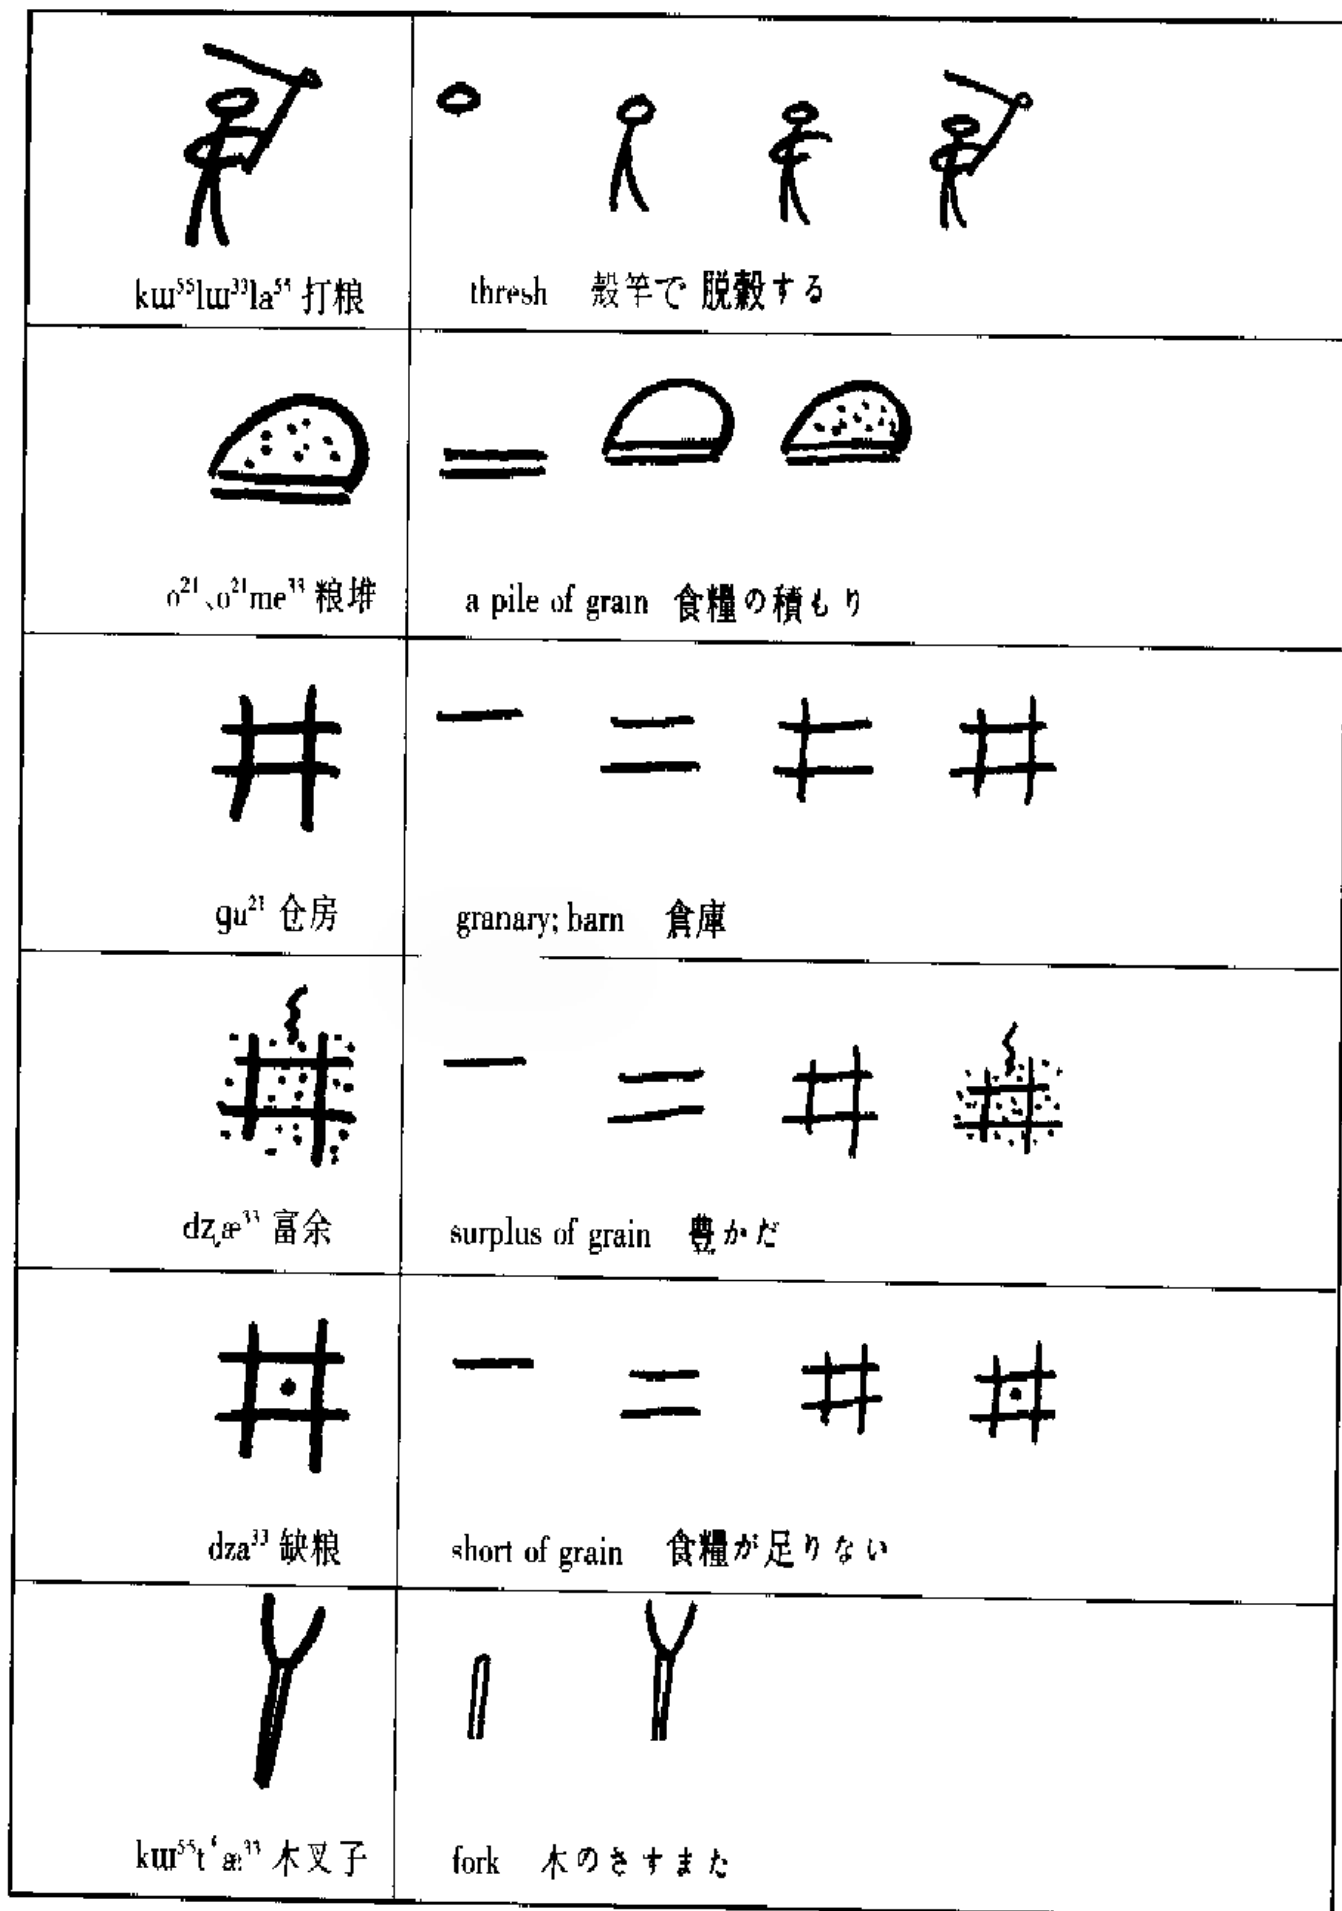 kɯ⁵⁵lɯ³³la⁵⁵ 打粮 thresh 殻竿で 脱穀する
o²¹、o²¹me³³ 粮堆 a pile of grain 食糧の積もり
gu²¹ 仓房 granary; barn 倉庫
dʐæ³³ 富余 surplus of grain 豊かだ
dza³³ 缺粮 short of grain 食糧が足りない
kɯ⁵⁵t‘æ³³ 木叉子 fork 木のさすまた